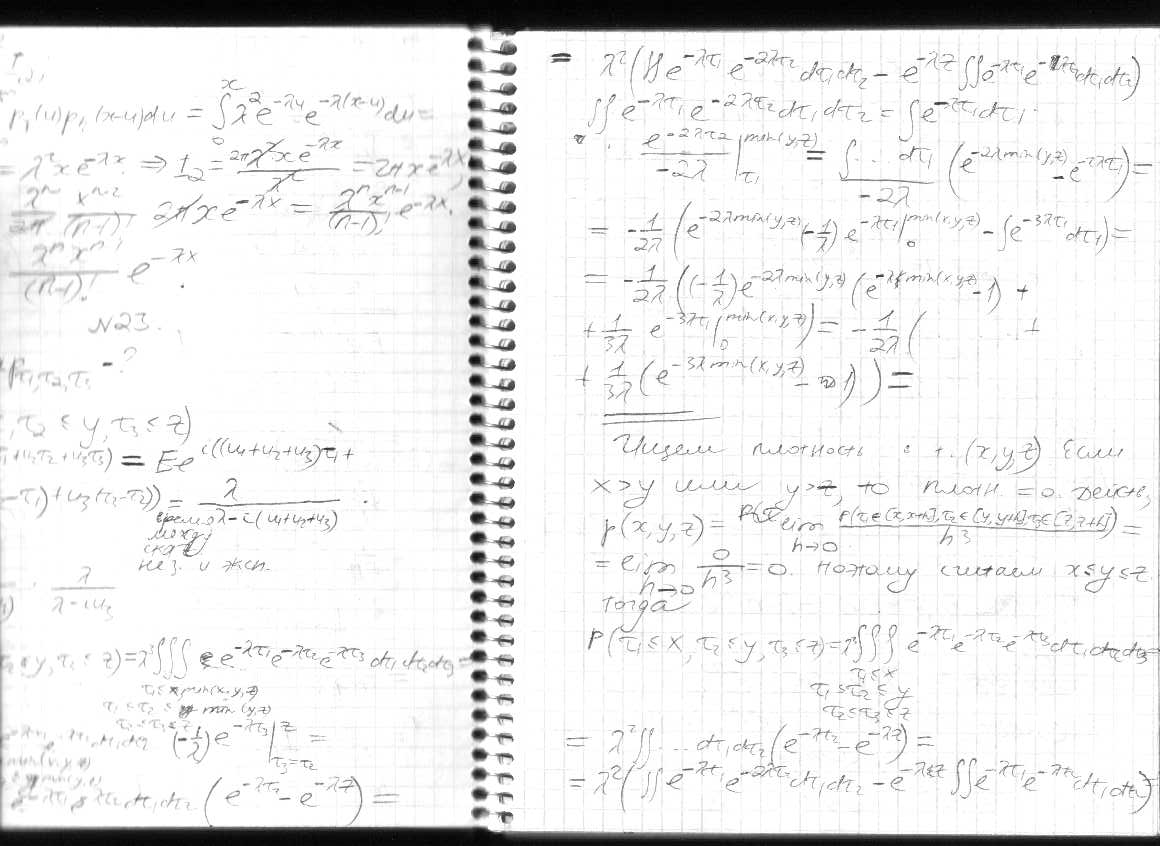 p₁(u)p₁(x-u)du = ∫₀ˣ λ² e^{-λu} e^{-λ(x-u)} du =
= λ² x e^{-λx} ⇒ = 2πxe^{-λx}
λⁿ x^{n-2} / (n-1)! 2πxe^{-λx} = λⁿ x^{n-1} / (n-1)! e^{-λx}.
λⁿ x^{n-1} / (n-1)! e^{-λx}.
N23.
p_{τ₁,τ₂,τ₃} - ?
, τ₂ ≤ y, τ₃ ≤ z)
+u₂τ₂+u₃τ₃) = Ee^{i((u₁+u₂+u₃)τ₁+
-τ₁)+u₃(τ₃-τ₂))} = λ / (λ-i(u₁+u₂+u₃)) .
время
между
нез. и эксп.
λ / (λ-iu₃)
τ₂ ≤ y, τ₃ ≤ z) = λ³∭ e^{-λτ₁} e^{-λτ₂} e^{-λτ₃} dτ₁dτ₂dτ₃ =
τ₁ ≤ min(x,y,z)
τ₁ ≤ τ₂ ≤ min(y,z)
τ₂ ≤ τ₃ ≤ z
dτ₁dτ₂ (-1/λ) e^{-λτ₃} |_{τ₃=τ₂}^{z} =
dτ₁dτ₂ (e^{-λτ₂} - e^{-λz}) =
= λ²(∬ e^{-λτ₁} e^{-2λτ₂} dτ₁dτ₂ - e^{-λz} ∬ e^{-λτ₁} e^{-λτ₂} dτ₁dτ₂)
∬ e^{-λτ₁} e^{-2λτ₂} dτ₁dτ₂ = ∫ e^{-λτ₁} dτ₁ ·
· e^{-2λτ₂} / -2λ |_{τ₁}^{min(y,z)} = ∫ ... dτ₁ / -2λ (e^{-2λmin(y,z)} - e^{-2λτ₁}) =
= -1/2λ (e^{-2λmin(y,z)} (-1/λ) e^{-λτ₁} |₀^{min(x,y,z)} - ∫ e^{-3λτ₁} dτ₁) =
= -1/2λ ((-1/λ) e^{-2λmin(y,z)} (e^{-λmin(x,y,z)} - 1) +
+ 1/3λ e^{-3λτ₁} |₀^{min(x,y,z)}) = -1/2λ ( ... +
+ 1/3λ (e^{-3λmin(x,y,z)} - 1)) =
Ищем плотность : т. (x,y,z) Если
x>y или y>z, то плотн. = 0. Действ,
p(x,y,z) = lim_{h→0} P(τ₁∈[x,x+h],τ₂∈[y,y+h],τ₃∈[z,z+h]) / h³ =
= lim_{h→0} 0/h³ = 0. Поэтому считаем x≤y≤z.
тогда
P(τ₁≤x, τ₂≤y, τ₃≤z) = λ³∭ e^{-λτ₁} e^{-λτ₂} e^{-λτ₃} dτ₁dτ₂dτ₃ =
τ₁≤x
τ₁≤τ₂≤y
τ₂≤τ₃≤z
= λ²∬ ... dτ₁dτ₂ (e^{-λτ₂} - e^{-λz}) =
= λ²(∬ e^{-λτ₁} e^{-2λτ₂} dτ₁dτ₂ - e^{-λz} ∬ e^{-λτ₁} e^{-λτ₂} dτ₁dτ₂)